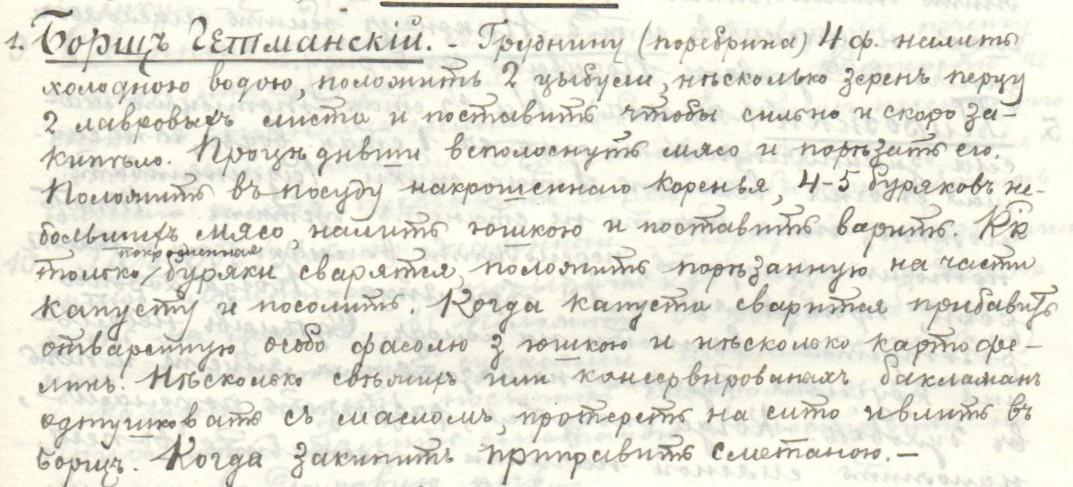 1. Борщъ Гетманскій. – Груднину (поребрина) 4 ф. налить
холодною водою, положить 2 цыбули, нѣсколько зеренъ перцу
2 лавровыхъ листа и поставить чтобы сильно и скоро за-
кипѣло. Процѣдивши всполоснуть мясо и порѣзать его.
Положить въ посуду накрошеннаго коренья, 4-5 буряковъ не-
большихъ мясо, налить юшкою и поставить варить. Как
только покрошенная буряки сварятся, положить порѣзанную на части
капусту и посолить. Когда капуста сварится прибавить
отваренную особо фасолю з юшкою и нѣсколько картофе-
линъ. Нѣсколько свѣжихъ или консервированыхъ баклажанъ
одтушковать съ масломъ, протереть на сито и влить въ
борщъ. Когда закипитъ приправить сметаною. –